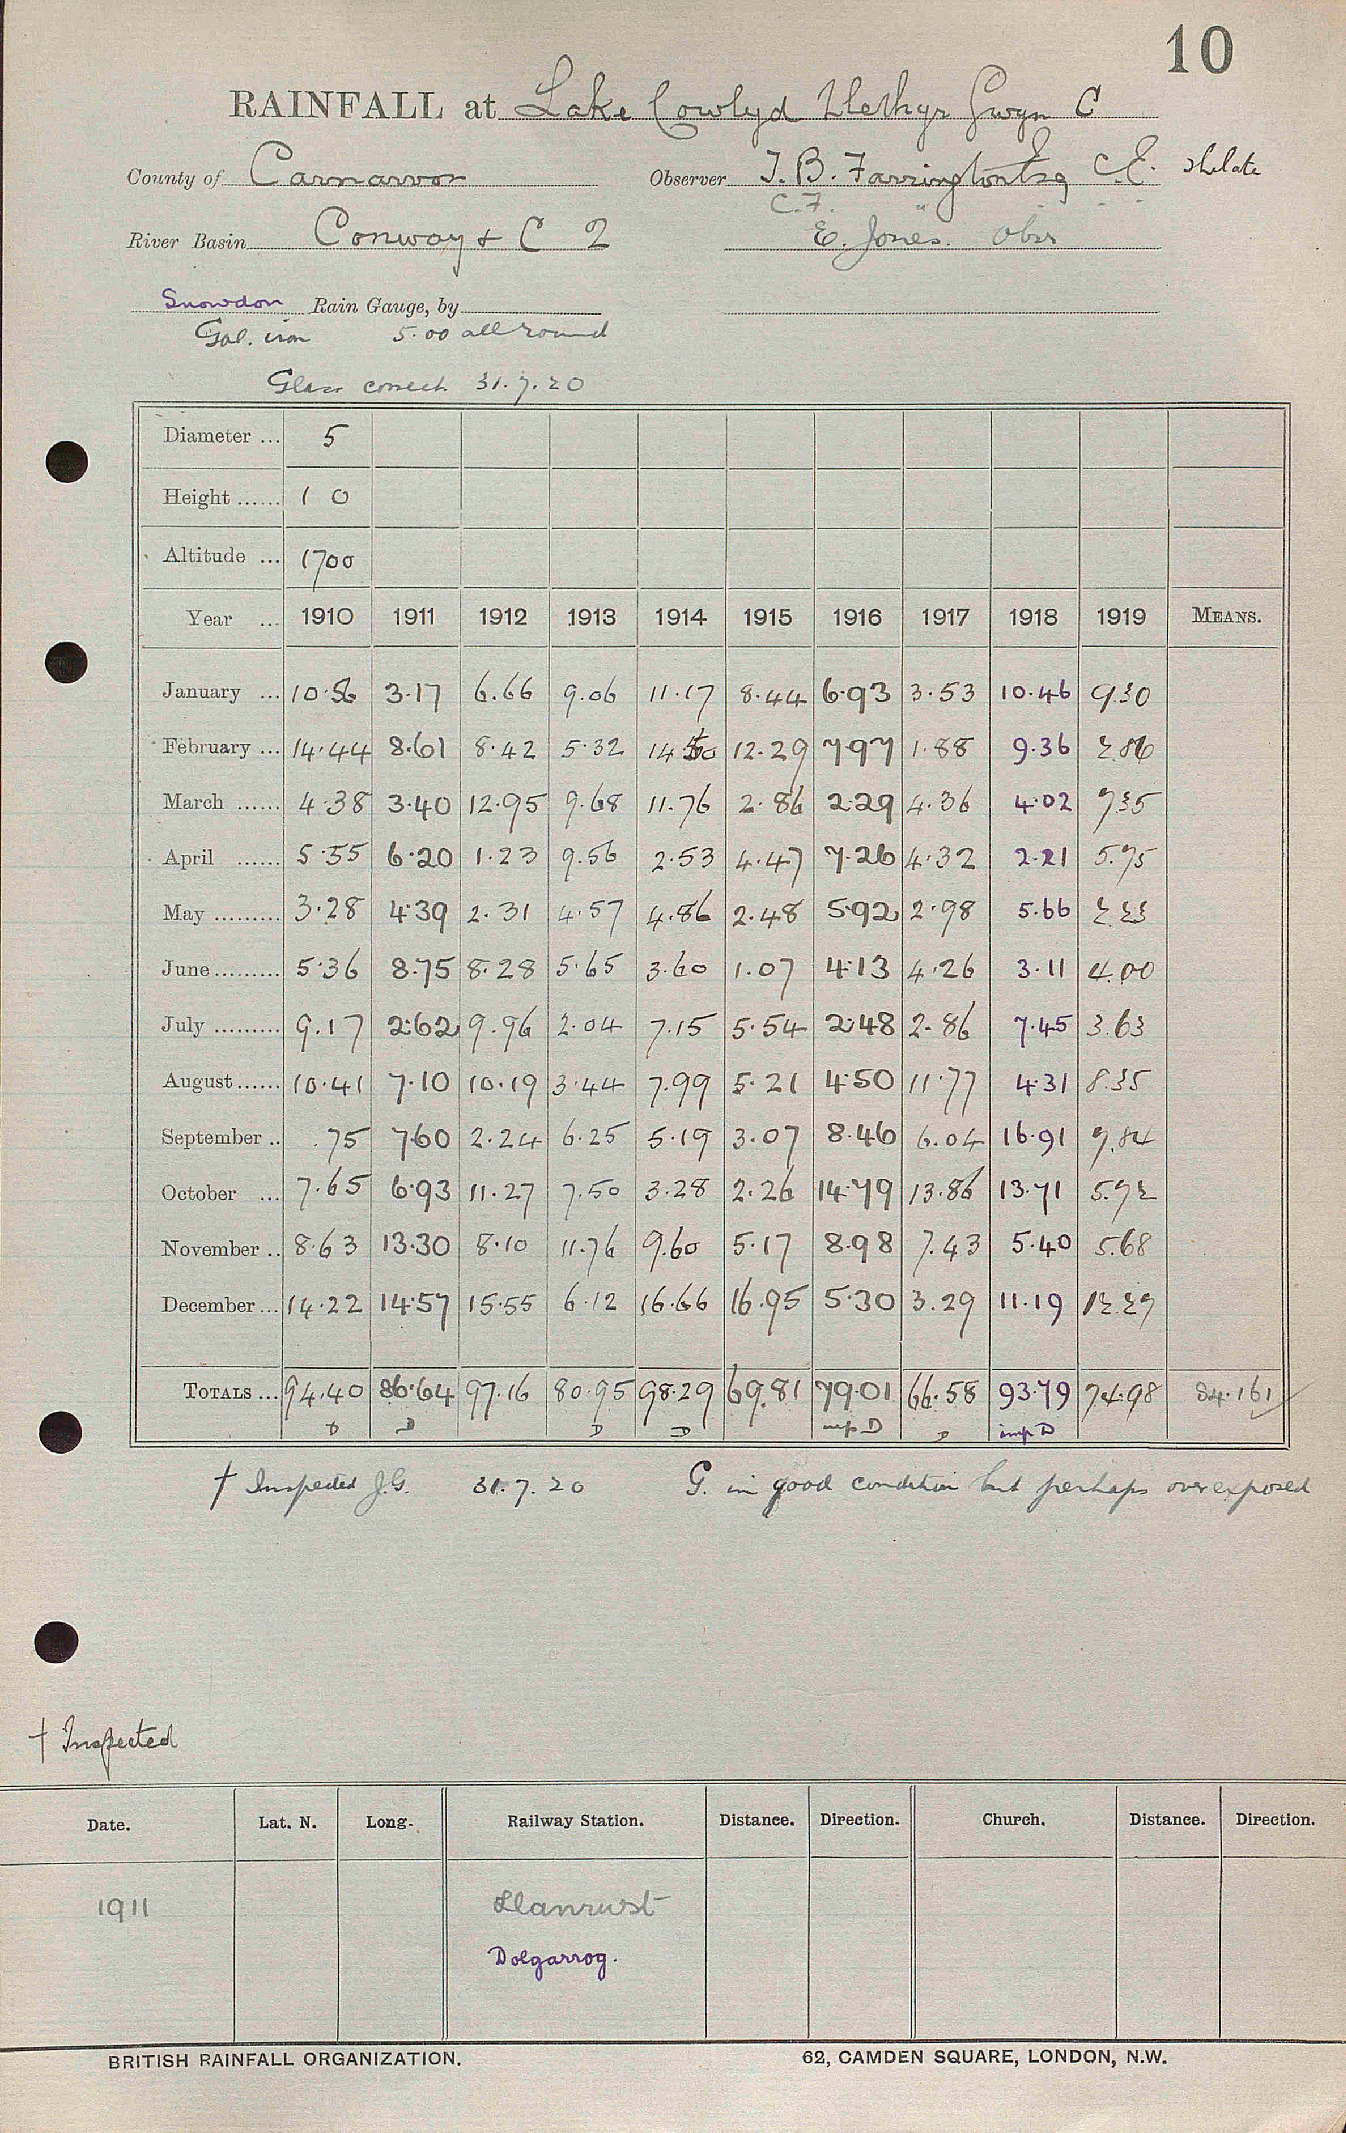 10
RAINFALL at Lake Cowlyd Llethyr Gwyn C
County of Carnarvon Observer T. B. Farrington Esq C.E.
C.F. " " "
River Basin Conway + C 2 E. Jones. Obsr
Snowdon Rain Gauge, by
Gal. iron 5.00 all round
Glass correct 31.7.20
Diameter ... 5
Height ...... 1 0
Altitude ... 1700
Year ... 1910 1911 1912 1913 1914 1915 1916 1917 1918 1919 MEANS.
January ... 10.56 3.17 6.66 9.06 11.17 8.44 6.93 3.53 10.46 9.30
February ... 14.44 8.61 8.42 5.32 14.50 12.29 7.97 1.88 9.36 2.86
March ...... 4.38 3.40 12.95 9.68 11.76 2.86 2.29 4.36 4.02 7.35
April ...... 5.55 6.20 1.23 9.56 2.53 4.47 7.26 4.32 2.21 5.75
May ......... 3.28 4.39 2.31 4.57 4.86 2.48 5.92 2.98 5.66
June ......... 5.36 8.75 8.28 5.65 3.60 1.07 4.13 4.26 3.11 4.00
July ......... 9.17 2.62 9.96 2.04 7.15 5.54 2.48 2.86 7.45 3.63
August ...... 10.41 7.10 10.19 3.44 7.99 5.21 4.50 11.77 4.31 8.35
September .. .75 7.60 2.24 6.25 5.19 3.07 8.46 6.04 16.91 7.84
October ... 7.65 6.93 11.27 7.50 3.28 2.26 14.79 13.86 13.71 5.72
November .. 8.63 13.30 8.10 11.76 9.60 5.17 8.98 7.43 5.40 5.68
December ... 14.22 14.57 15.55 6.12 16.66 16.95 5.30 3.29 11.19 12.27
TOTALS ... 94.40 86.64 97.16 80.95 98.29 69.81 79.01 66.58 93.79 74.98 84.161
D D D D imp D D imp D
† Inspected J.G. 31.7.20 G. in good condition but perhaps over exposed
† Inspected
Date. Lat. N. Long. Railway Station. Distance. Direction. Church. Distance. Direction.
1911 Llanrwst
Dolgarrog.
BRITISH RAINFALL ORGANIZATION. 62, CAMDEN SQUARE, LONDON, N.W.